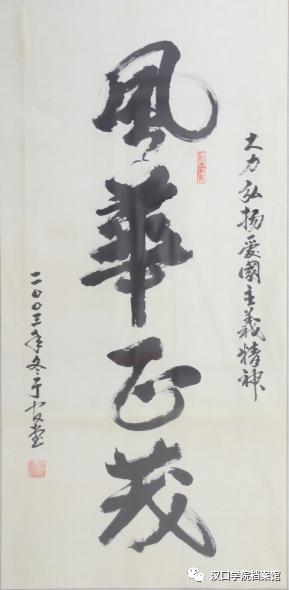 大力弘扬爱國主義精神
風華正茂
二〇〇三年冬于
汉口学院档案馆